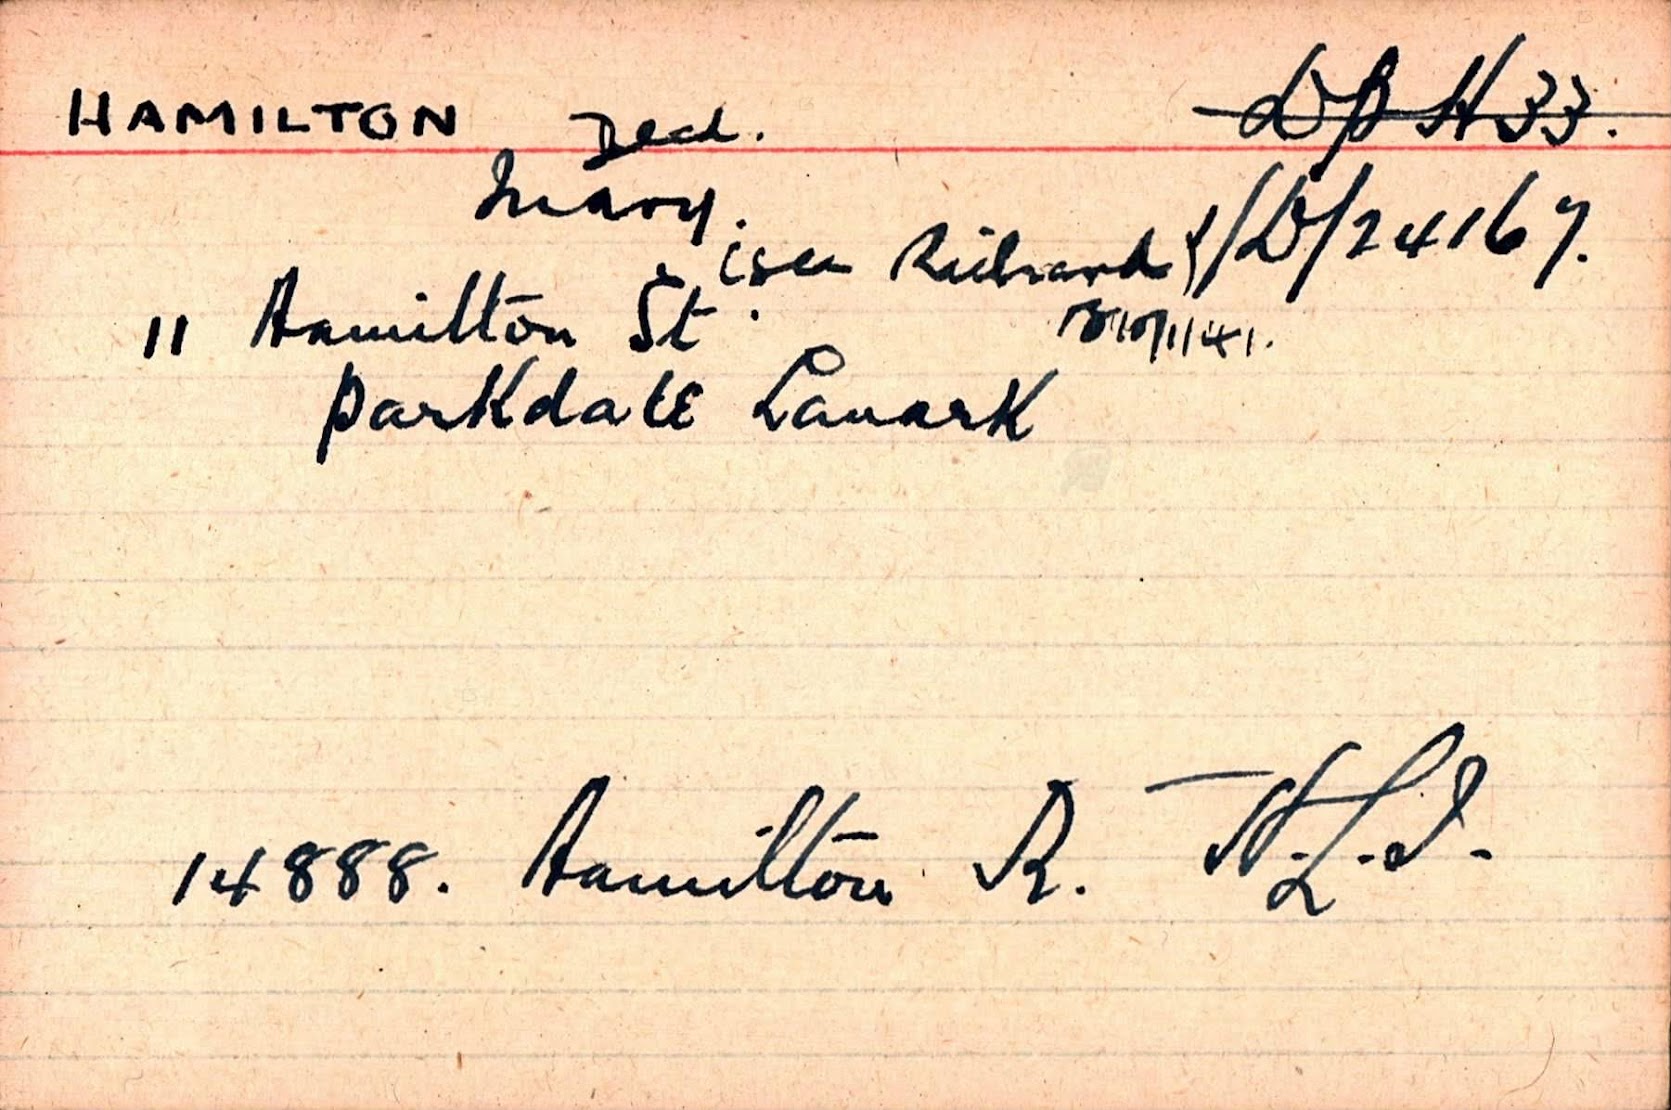 HAMILTON Decd. DP H33.
Mary.
(see Richard) /D/24167.
11 Hamilton St.
Parkdale Lanark
14888. Hamilton R. H.L.I.